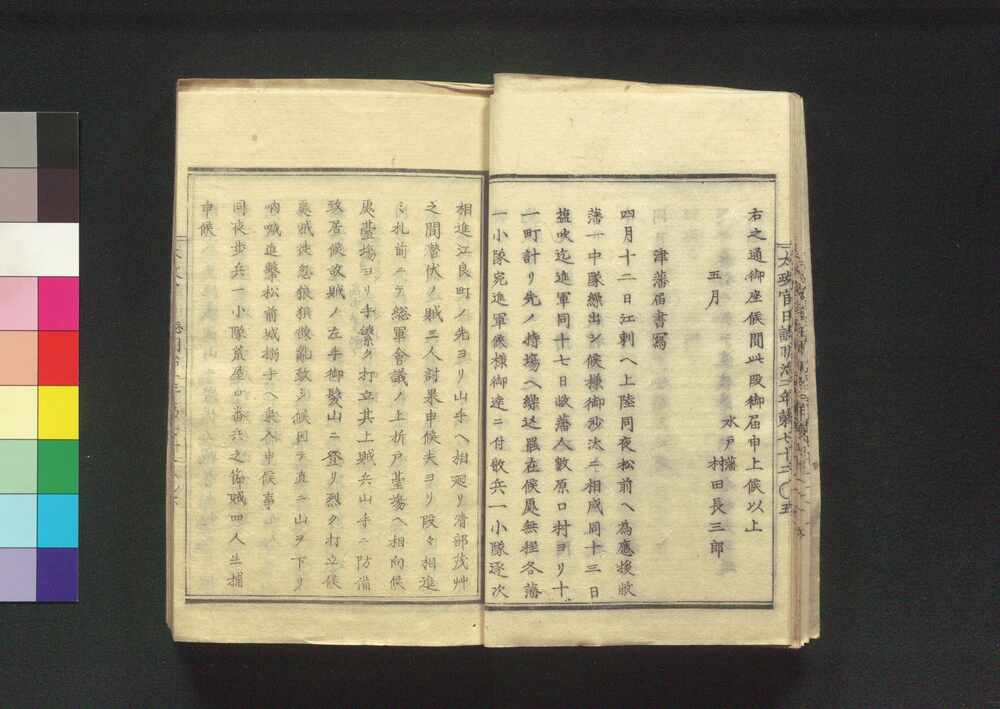 太政官日誌明治二年第七十二〇五
右之通御座候間此段御届申上候以上
水戸藩
五月 村田長三郎
津藩届書寫
四月十二日江刺ヘ上陸同夜松前ヘ為應援弊
藩一中隊繰出シ候様御沙汰ニ相成同十三日
塩吹迄進軍同十七日弊藩人數原口村ヨリ十
一町計リ先ノ持塲ヘ繰込罷在候處無程各藩
一小隊宛進軍候様御達ニ付散兵一小隊逐次
相進江良町ノ先ヨリ山手ヘ相廻リ清部茂艸
之間潜伏ノ賊二人討果申候夫ヨリ段々相進
ミ札前ニテ総軍會議ノ上折戸臺塲ヘ相向候
處臺塲ヨリ手繁ク打立其上賊兵山手ニ防備
致居候故賊ノ左手御髮山ニ登リ烈ク打立候
處賊徒忽狼狽散亂致シ候因テ直ニ山ヲ下リ
吶喊進撃松前城搦手ヘ乗入申候事
同夜歩兵一小隊荒屋ノ番兵之節賊四人生捕
申候